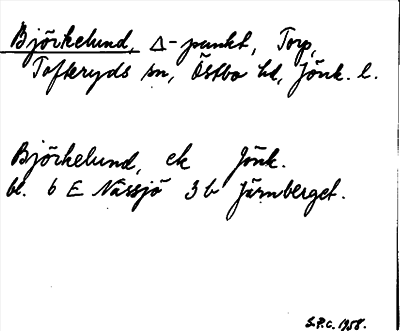 Björkelund, Δ-punkt, Torp,
Tofteryds sn, Östbo hd, Jönk. l.
Björkelund, ek Jönk.
bl. 6 E Nässjö 3 b Järnberget.
S.P.C. 1958.